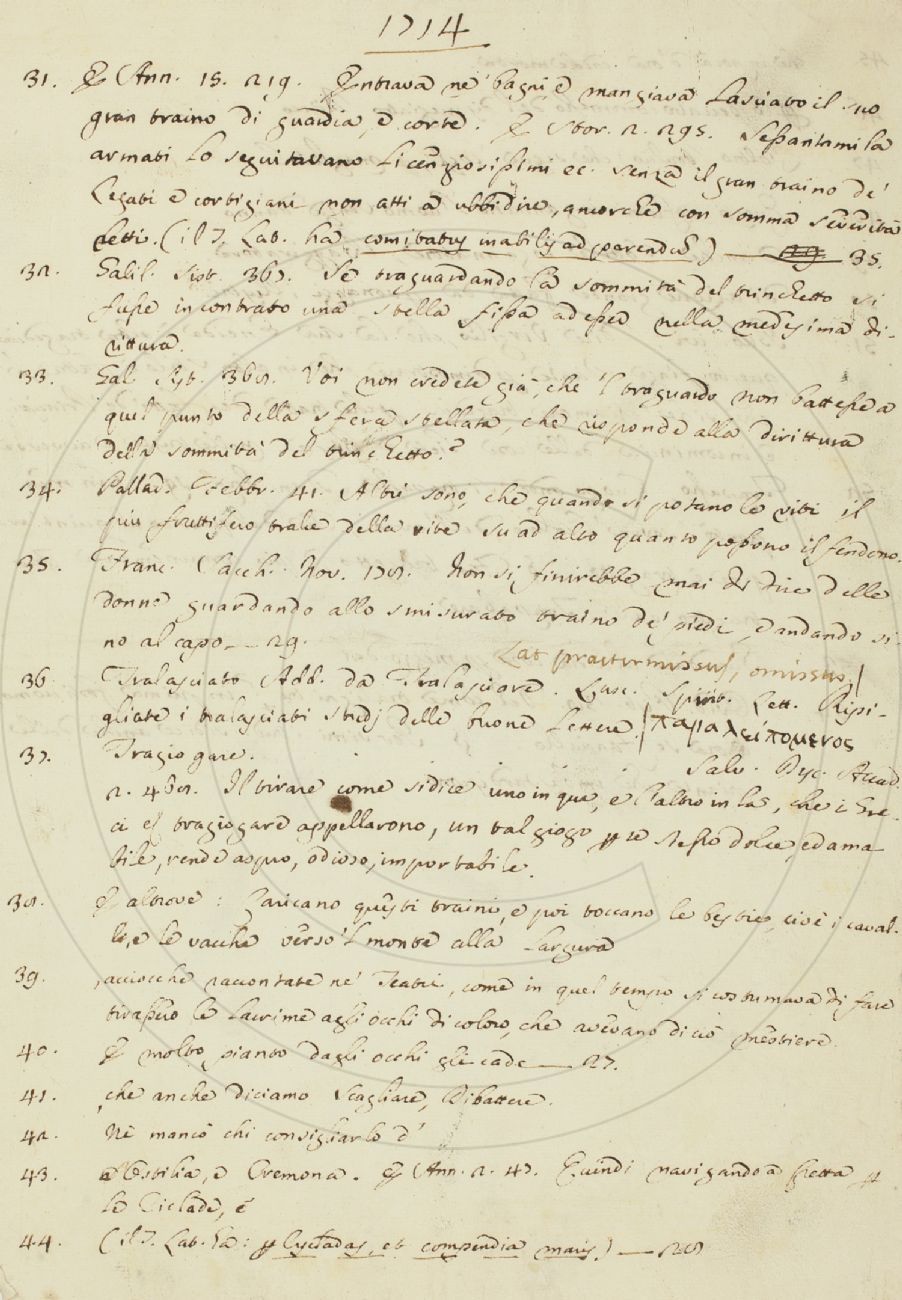 1714
31. E Ann. 15. 219. Entrava ne' bagni, e mangiava lasciato il suo
gran traino di guardia, e corte. E Stor. 2. 295. Sessantamila
armati lo seguitavano licenziosissimi ec. senza il gran traino de'
Legati e cortigiani non atti a ubbidire, ancorchè con somma severità
retti. (il T. Lat. ha comitatus inabilis ad parendũ) — 35.
32. Galil. Sist. 367. Se traguardando la sommità del trinchetto si
fusse incontrato una stella fissa ad esser nella medesima di-
rittura.
33. Gal. Sist. 368. Voi non credete già, che 'l traguardo non battesse a
quel punto della sfera stellata, che risponde alla dirittura
della sommità del trinchetto?
34. Pallad. Febbr. 41. Altri sono, che quando si potano le viti il
più fruttifero tralce della vite su ad alto quanto possono il fendono.
35. Franc. Sacch. Nov. 178. Non si finirebbe mai di dire delle
donne guardando allo smisurato traino de' piedi, e andando si-
no al capo — 29.
Lat praetermissus, omissus,
36 Tralasciato Add. da Tralasciare. Lusc. Spirit. Lett. Ripi-
gliate i tralasciati studj delle buone lettere. παραλειπόμενος
37. Tragiogare. Salv. Disc. Accad.
2. 468. Il tirare come si dice uno in qua, e l'altro in là, che i Gre-
ci tragiogare appellarono, un tal giogo p se stesso dolce, ed ama
bile, rende aspro, odioso, importabile.
38. E altrove: Caricano questi traini, e poi toccano le bestie, cioè i caval-
li, e le vacche verso 'l monte alla largura
39. , acciocchè raccontate ne' Teatri, come in quel tempo si costumava di fare
tirassero le lacrime agli occhi di coloro, che avevano di ciò mestiere.
40. E molto pianto dagli occhi gli cade — 27.
41. , che anche diciamo Scagliare, Dibattere.
42. Nè mancò chi consigliarlo d'
43. Ostilia, e Cremona. E Ann. 2. 47. Quindi navigando a fretta p
le Ciclade, e
44. (il T. Lat. ha: p Cycladas, et compendia maris.) — 28